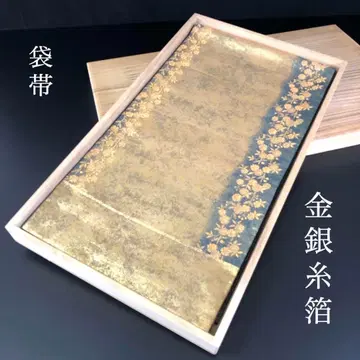 袋帯
金銀糸箔